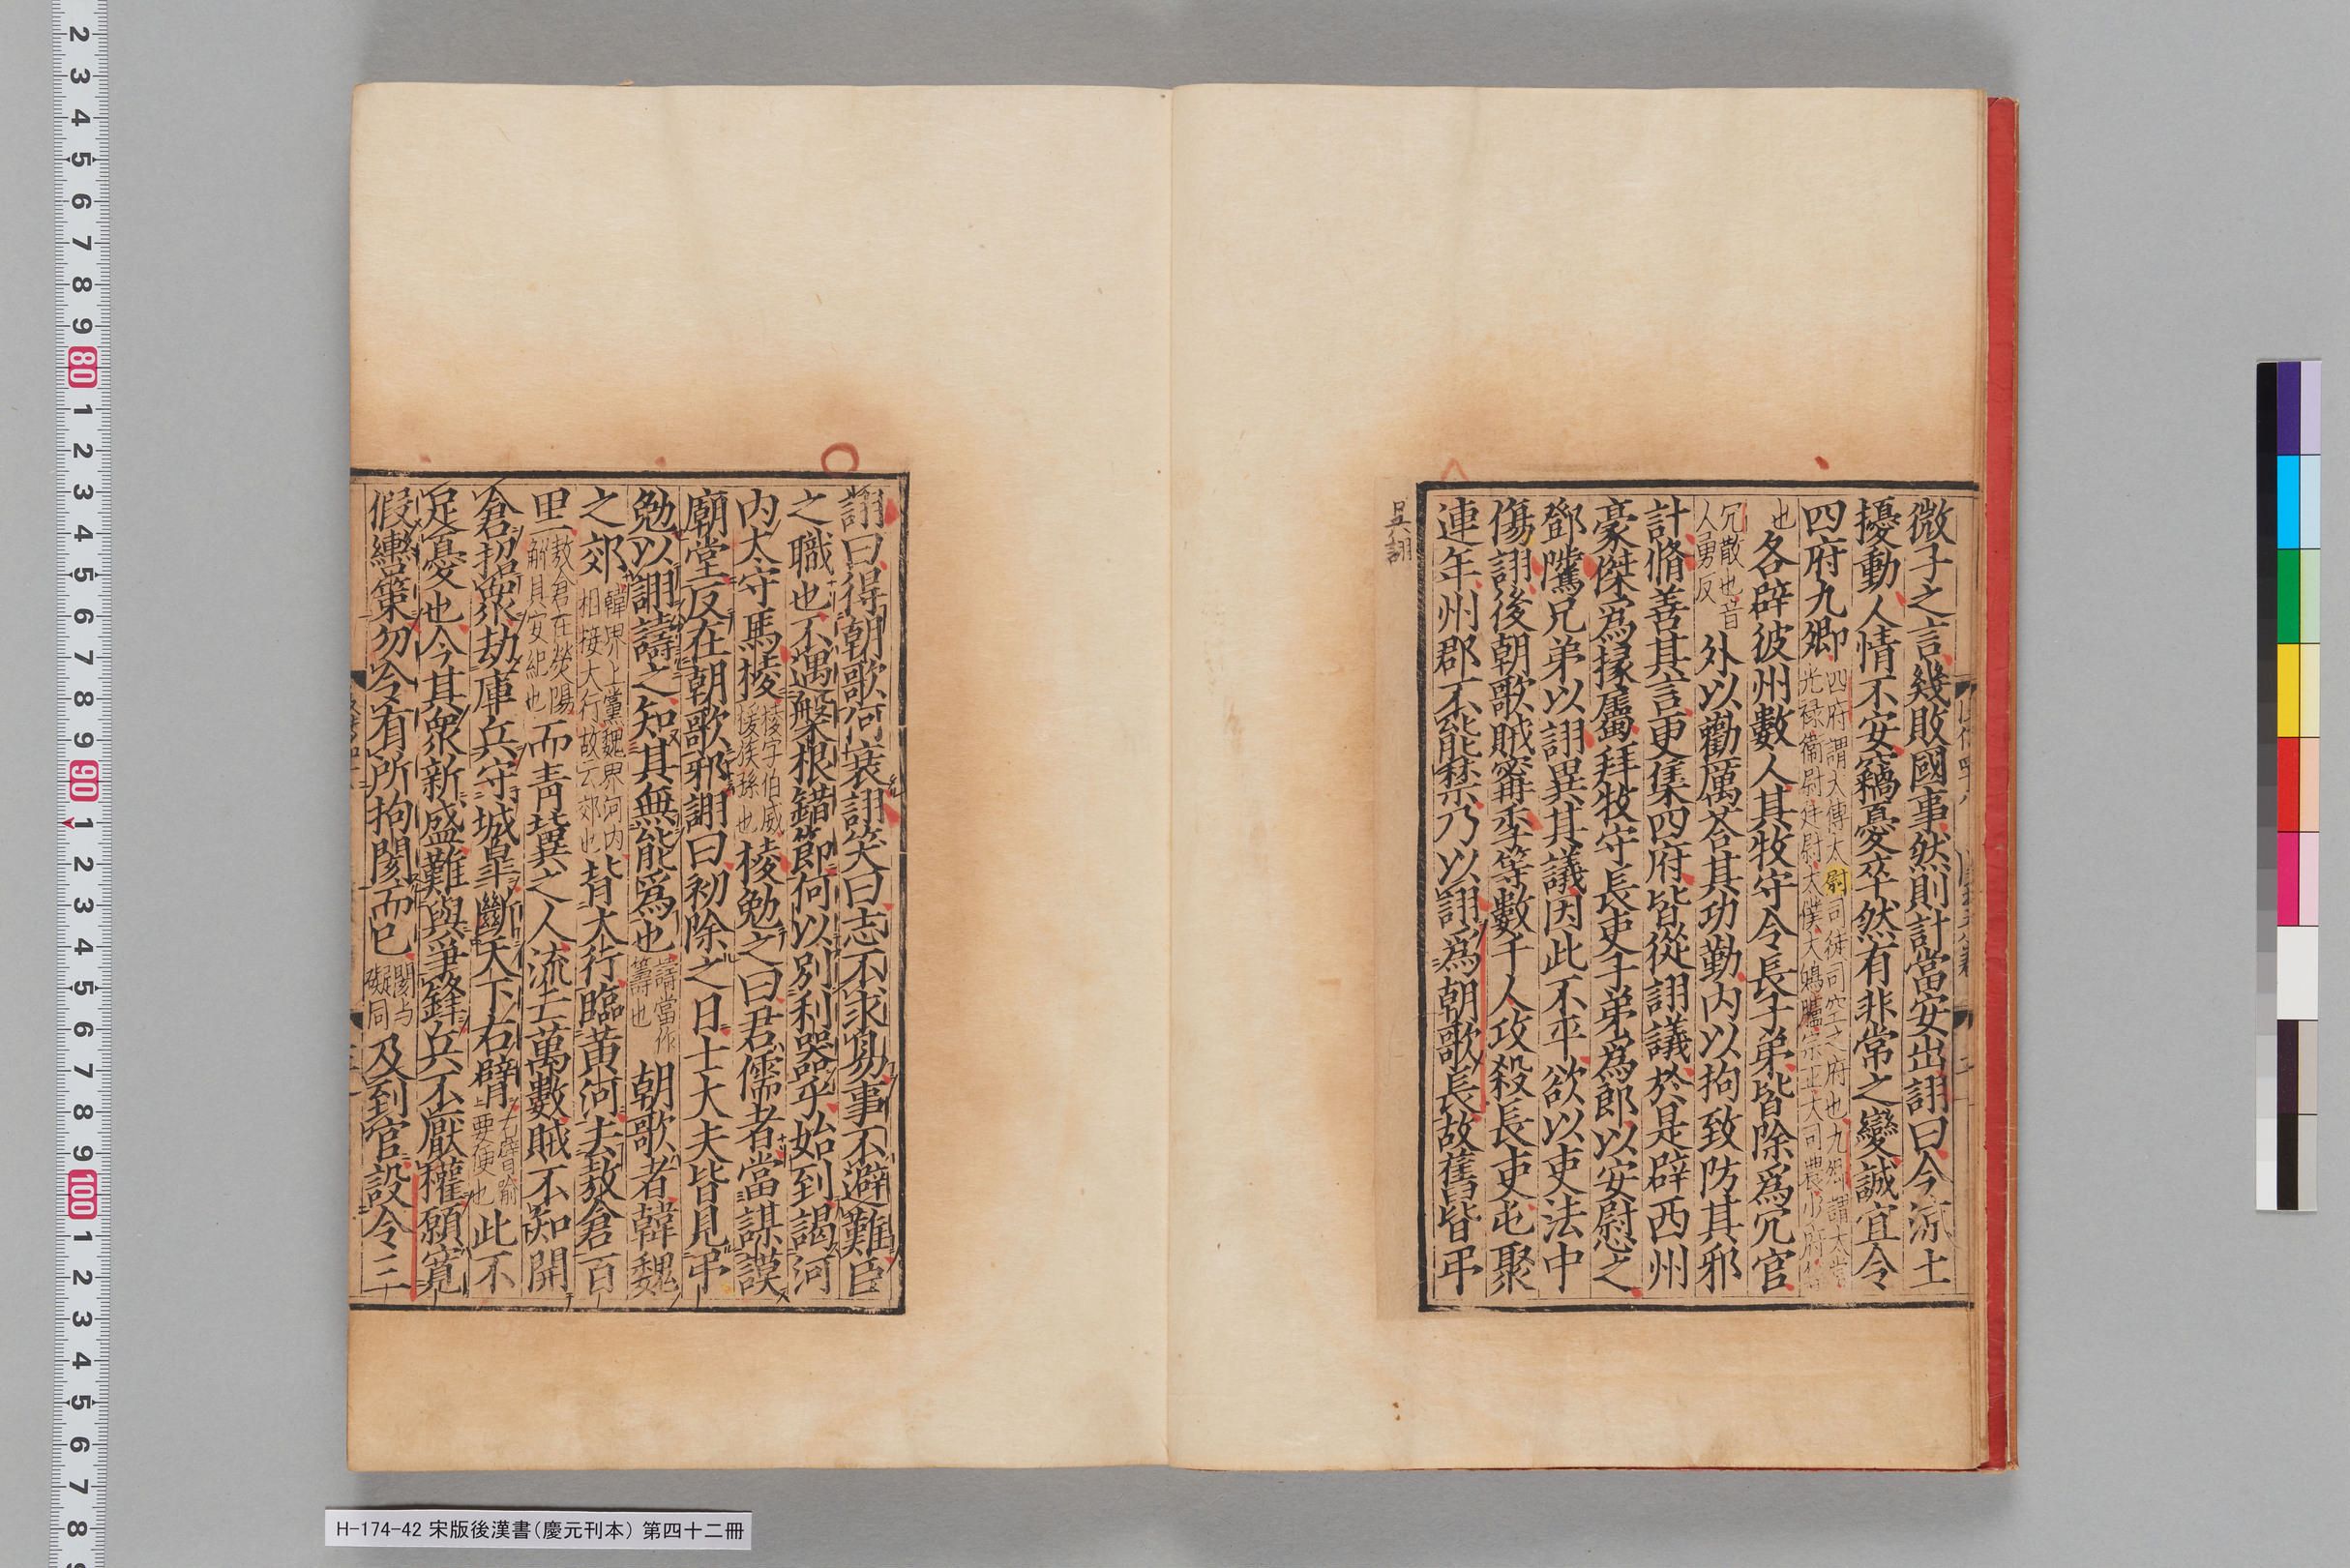 微子之言幾敗國事然則計當安出詡曰今涼土
擾動人情不安竊憂卒然有非常之變誠宜令
四府九卿四府謂太傅太尉司徒司空之府也九卿謂太常光祿衛尉廷尉太僕大鴻臚宗正大司農少府等
也各辟彼州數人其牧守令長子弟皆除爲冗官
冗散也音人勇反外以勸厲荅其功勤内以拘致防其邪
計脩善其言更集四府皆從詡議於是辟西州
豪傑爲掾屬拜牧守長吏子弟爲郎以安慰之
鄧騭兄弟以詡異其議因此不平欲以吏法中
傷詡後朝歌賊甯季等數千人攻殺長吏屯聚
連年州郡不能禁乃以詡爲朝歌長故舊皆弔
吳詡
詡曰得朝歌何衰詡笑曰志不求易事不避難臣
之職也不遇槃根錯節何以別利器乎始到謁河
内太守馬棱棱字伯威援族孫也棱勉之曰君儒者當謀謨
廟堂反在朝歌邪詡曰初除之日士大夫皆見弔
勉以詡譸之知其無能爲也譸當作籌也朝歌者韓魏
之郊韓界上黨魏界河内相接大行故云郊也背大行臨黄河去敖倉百
里敖倉在滎陽解具安紀也而青冀之人流亡萬數賊不知開
倉招衆劫庫兵守城皐斷天下右臂右臂喻要便也此不
足憂也今其衆新盛難與爭鋒兵不厭權願寬
假轡策勿令有所拘閡而已閡与礙同及到官設令三
2
3
4
5
6
7
8
9
80
1
2
3
4
5
6
7
8
9
90
1
2
3
4
5
6
7
8
9
100
1
2
3
4
5
6
7
8
H-174-42 宋版後漢書（慶元刊本） 第四十二冊